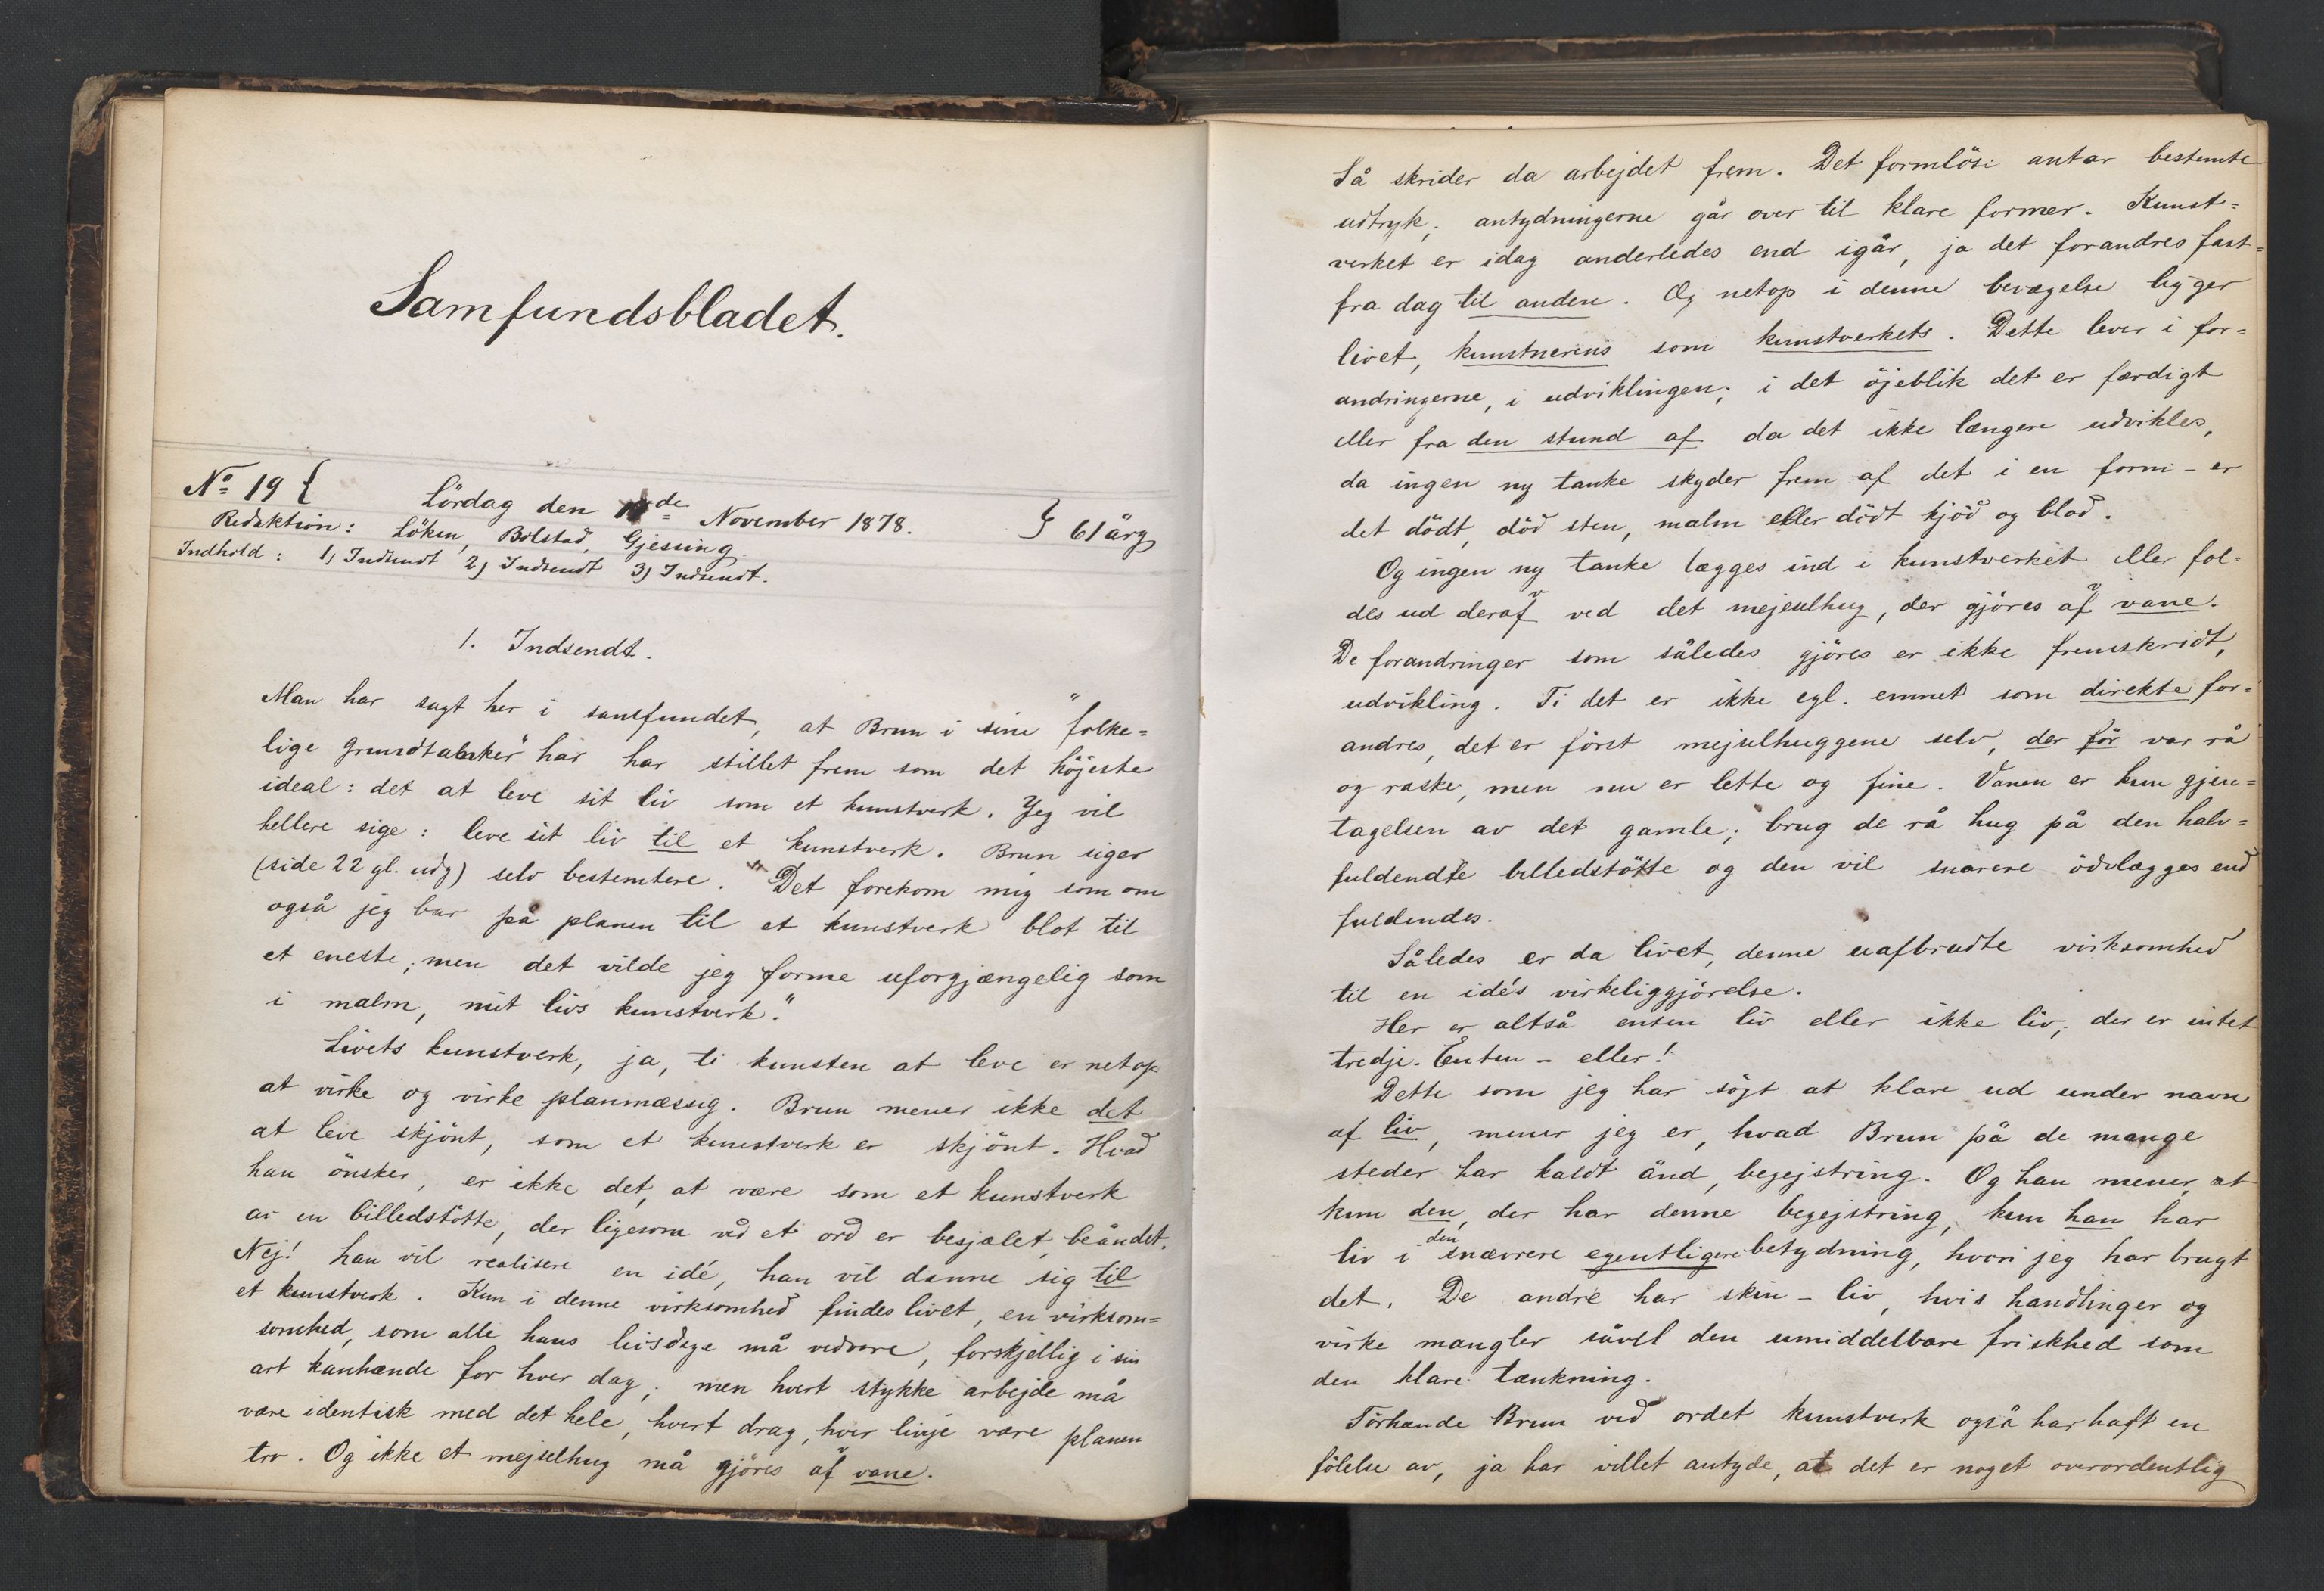 Samfundsbladet.
No 19 { Lördag den de November 1878. } 61 årg
Redaktion: Löken, Bolstad, Gjessing.
Indhold: 1) Indsendt 2) Indsendt 3) Indsendt.
1. Indsendt.
Man har sagt her i samfundet, at Brun i sine "folke=
lige grundtanker" har har stillet frem som det höjeste
ideal: det at leve sit liv som et kunstverk. Jeg vil
hellere sige: leve sit liv til et kunstverk. Brun siger
(side 22 gl. udg) selv bestemtere. "Det forekom mig som om
også jeg bar på planen til et kunstverk blot til
et eneste; men det vilde jeg forme uforgjængelig som
i malm, mit livs kunstverk."
Livets kunstverk, ja, ti kunsten at leve er netop
at virke og virke planmæssig. Brun mener ikke det
at leve skjönt, som et kunstverk er skjönt. Hvad
han önsker, er ikke det, at være som et kunstverk
av en billedstötte, der ligesom ved et ord er besjælet, beåndet.
Nej! han vil realisere en idé, han vil danne sig til
et kunstverk. Kun i denne virksomhed findes livet, en virksom=
somhed, som alle hans livsdage må vedvare, forskjellig i sin
art kanhænde for hver dag; men hvert stykke arbejde må
være identisk med det hele, hvert drag, hver linje være planen
tro. Og ikke et mejselhug må gjöres af vane.
Så skrider da arbejdet frem. Det formlöse antar bestemte
udtryk, antydningerne går over til klare former. Kunst=
verket er idag anderledes end igår, ja det forandres fast=
fra dag til anden. Og netop i denne bevægelse ligger
livet, kunstnerens som kunstverkets. Dette lever i for=
andringerne, i udviklingen; i det öjeblik det er færdigt
eller fra den stund af da det ikke længere udvikles,
da ingen ny tanke skyder frem af det i en form - er
det dödt, död sten, malm eller dödt kjöd og blod.
Og ingen ny tanke lægges ind i kunstverket eller fol=
des ud deraf ved det mejselhug, der gjöres af vane.
De forandringer som således gjöres er ikke fremskridt,
udvikling. Ti det er ikke egl. emnet som direkte for=
andres, det er först mejselhuggene selv, der för var rå
og raske, men nu er lette og fine. Vanen er kun gjen=
tagelsen av det gamle; brug de rå hug på den halv=
fuldendte billedstötte og den vil snarere ödelægges end
fuldendes.
Således er da livet, denne uafbrudte virksomhed
til en idé's virkeliggjörelse.
Her er altså enten liv eller ikke liv; der er intet
tredje. Enten - eller!
Dette som jeg har sögt at klare ud under navn
af liv, mener jeg er, hvad Brun på de mange
steder har kaldt ånd, begejstring. Og han mener, at
kun den, der har denne begejstring, kun han har
liv i den snævrere egentligere betydning, hvori jeg har brugt
det. De andre har skin-liv, hvis handlinger og
virke mangler såvel den umiddelbare friskhed som
den klare tænkning.
Törhænde Brun ved ordet kunstverk også har haft en
fölelse av, ja har villet antyde, at det er noget overordentlig